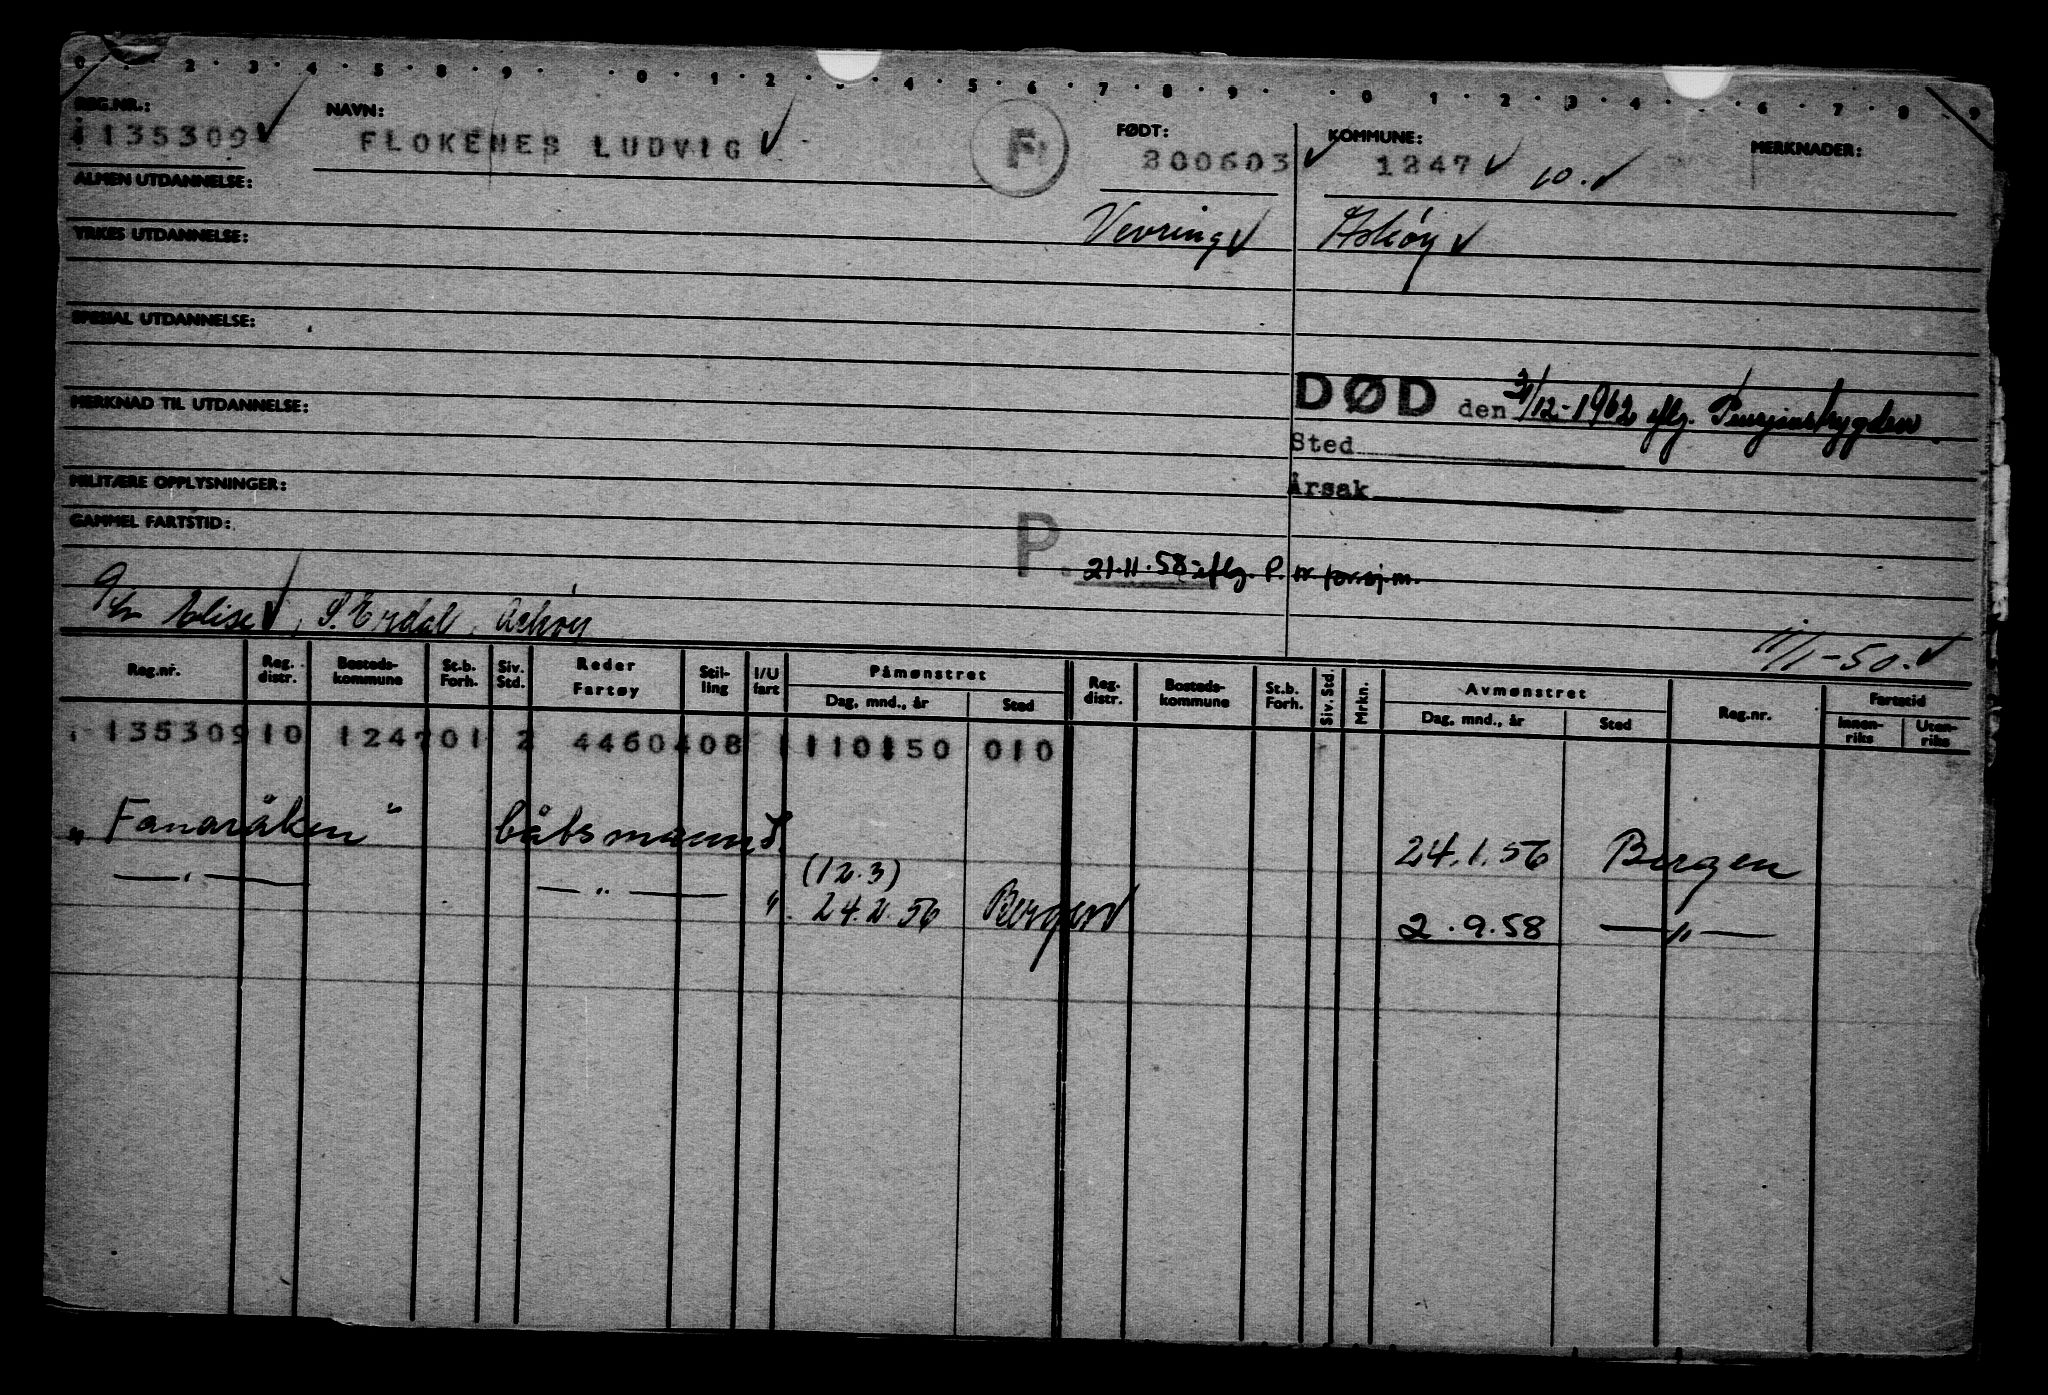 0 · 2 · 3 · 4 · 5 · 8 · 9 · · 0 · 1 · 2 · · 4 · 5 · 6 · 7 · 8 · 9 · · 0 · 1 · 2 · 3 · 4 · · 6 · 7 · 8 · 9
REG.NR.: NAVN: FØDT: KOMMUNE: MERKNADER:
135309 ✓ FLOKENES LUDVIG ✓ F 200603 ✓ 1247 ✓ 10. ✓
ALMEN UTDANNELSE:
Vevring ✓ Askøy ✓
YRKES UTDANNELSE:
SPESIAL UTDANNELSE:
DØD den 3/12-1962 eflg. Pensjonstrygden
MERKNAD TIL UTDANNELSE:
Sted
MILITÆRE OPPLYSNINGER:
Årsak
GAMMEL FARTSTID:
P. 21.11.58 eflg. P. tr for sjøm.
Elise ✓, S. Erdal, Askøy
11/1-50. ✓
Reg.nr. Reg. distr. Bosteds-kommune St.b. Forh. Siv. Std. Reder Fartøy Stil-ling I/U fart Påmønstret Reg. distr. Bosteds-kommune St.b. Forh. Siv. Std. Mrkn. Avmønstret Reg.nr. Fartstid
Dag, mnd., år Sted Dag, mnd., år Sted Innen-riks Uten-riks
135309 10 1247 01 2 4460 408 1 110150 010
"Fanaråken" båtsmann 24.1.56 Bergen
—"— —"— " (12.3)
24.2.56 Bergen 2.9.58 —"—